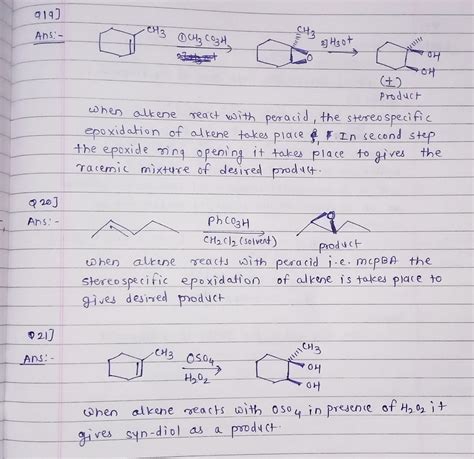 Q19]
Ans:-
CH3 ①CH3CO3H CH3 O 2) H3O+ CH3 OH OH
(±)
Product
when alkene react with peracid, the stereospecific
epoxidation of alkene takes place & In second step
the epoxide ring opening it takes place to gives the
racemic mixture of desired product.
Q20]
Ans:- PhCO3H O
CH2Cl2 (solvent) product
when alkene reacts with peracid i.e. mcpBA the
stereospecific epoxidation of alkene is takes place to
gives desired product
Q21]
Ans:- CH3 OSO4 CH3 OH
H2O2 OH
when alkene reacts with OSO4 in presence of H2O2 it
gives syn-diol as a product.